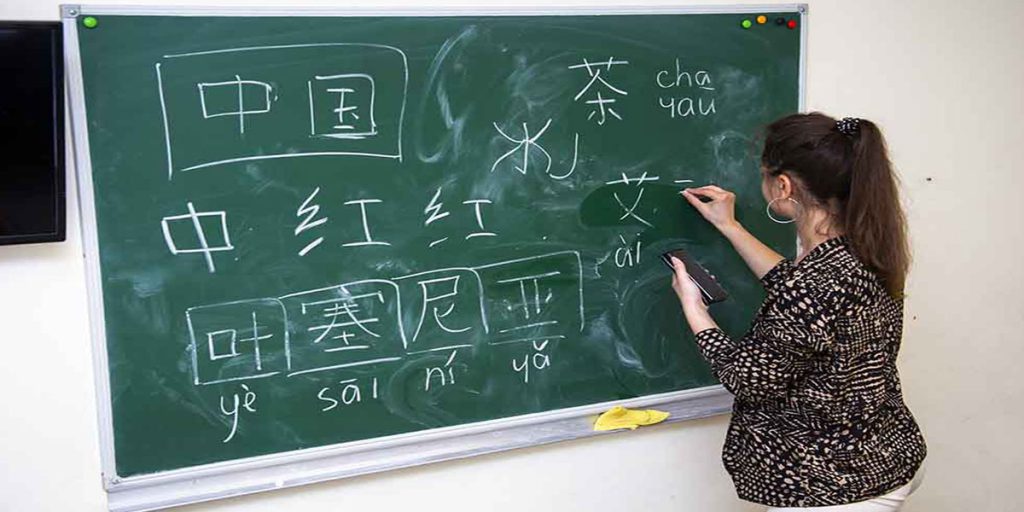 中国
茶 cha
yau
水
中 红 红
艾
ài
叶塞尼亚
yè sāi ní yǎ